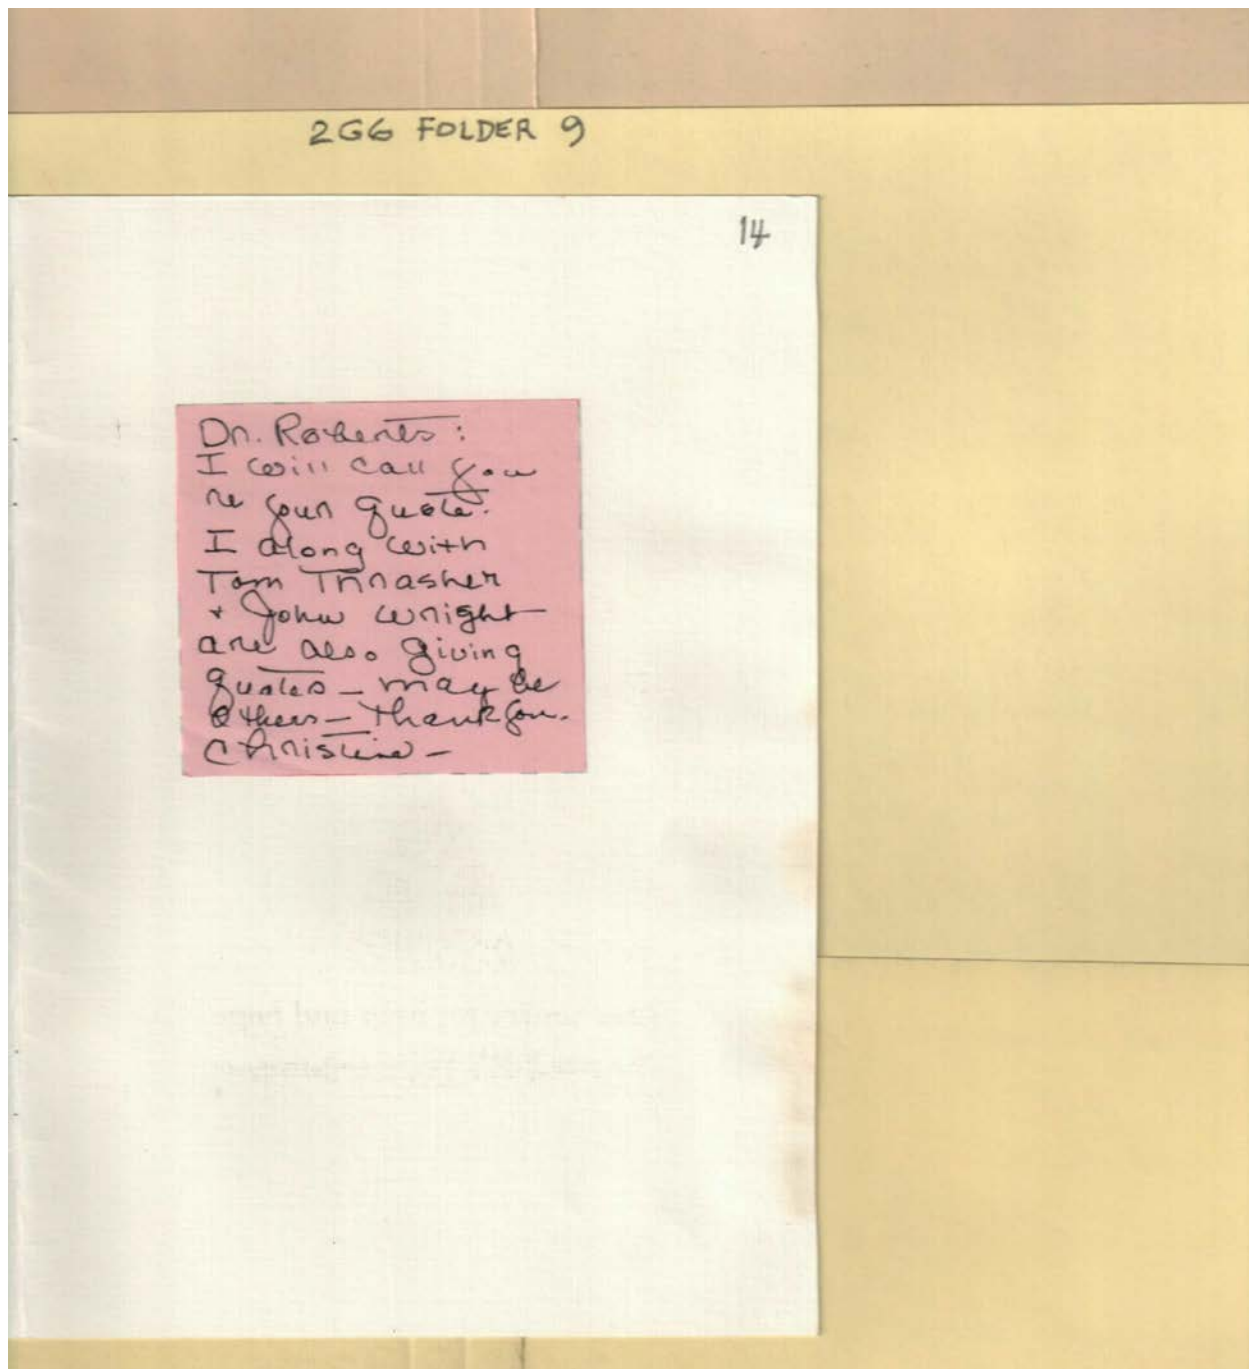 2G6 FOLDER 9
14
Dr. Roberts:
I will call you
re your quote.
I along with
Tom Thrasher
+ John Wright
are also giving
quotes – may be
others – Thank you.
Christine –